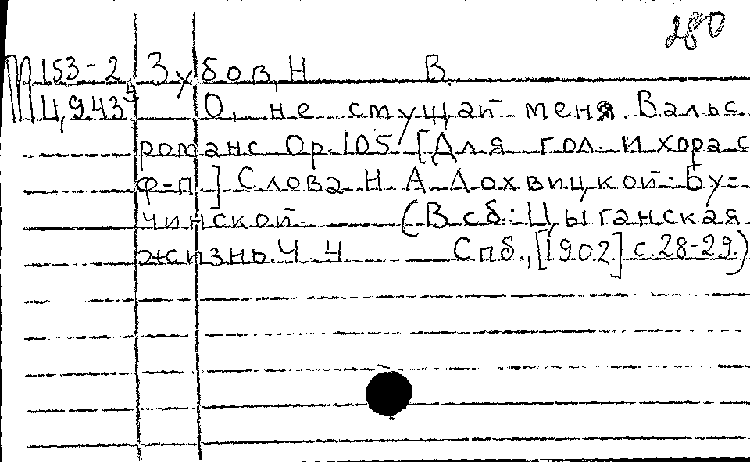 280
М 153-2 Зубов, Н В.
Ц,943⁵ О, не смущай меня. Вальс
романс Ор. 105. [Для гол. и хора с
ф-п.] Слова Н. А. Лохвицкой-Бу-
чинской (В сб.: Цыганская
жизнь. Ч. 4 Спб., [1902.] с. 28-29.)